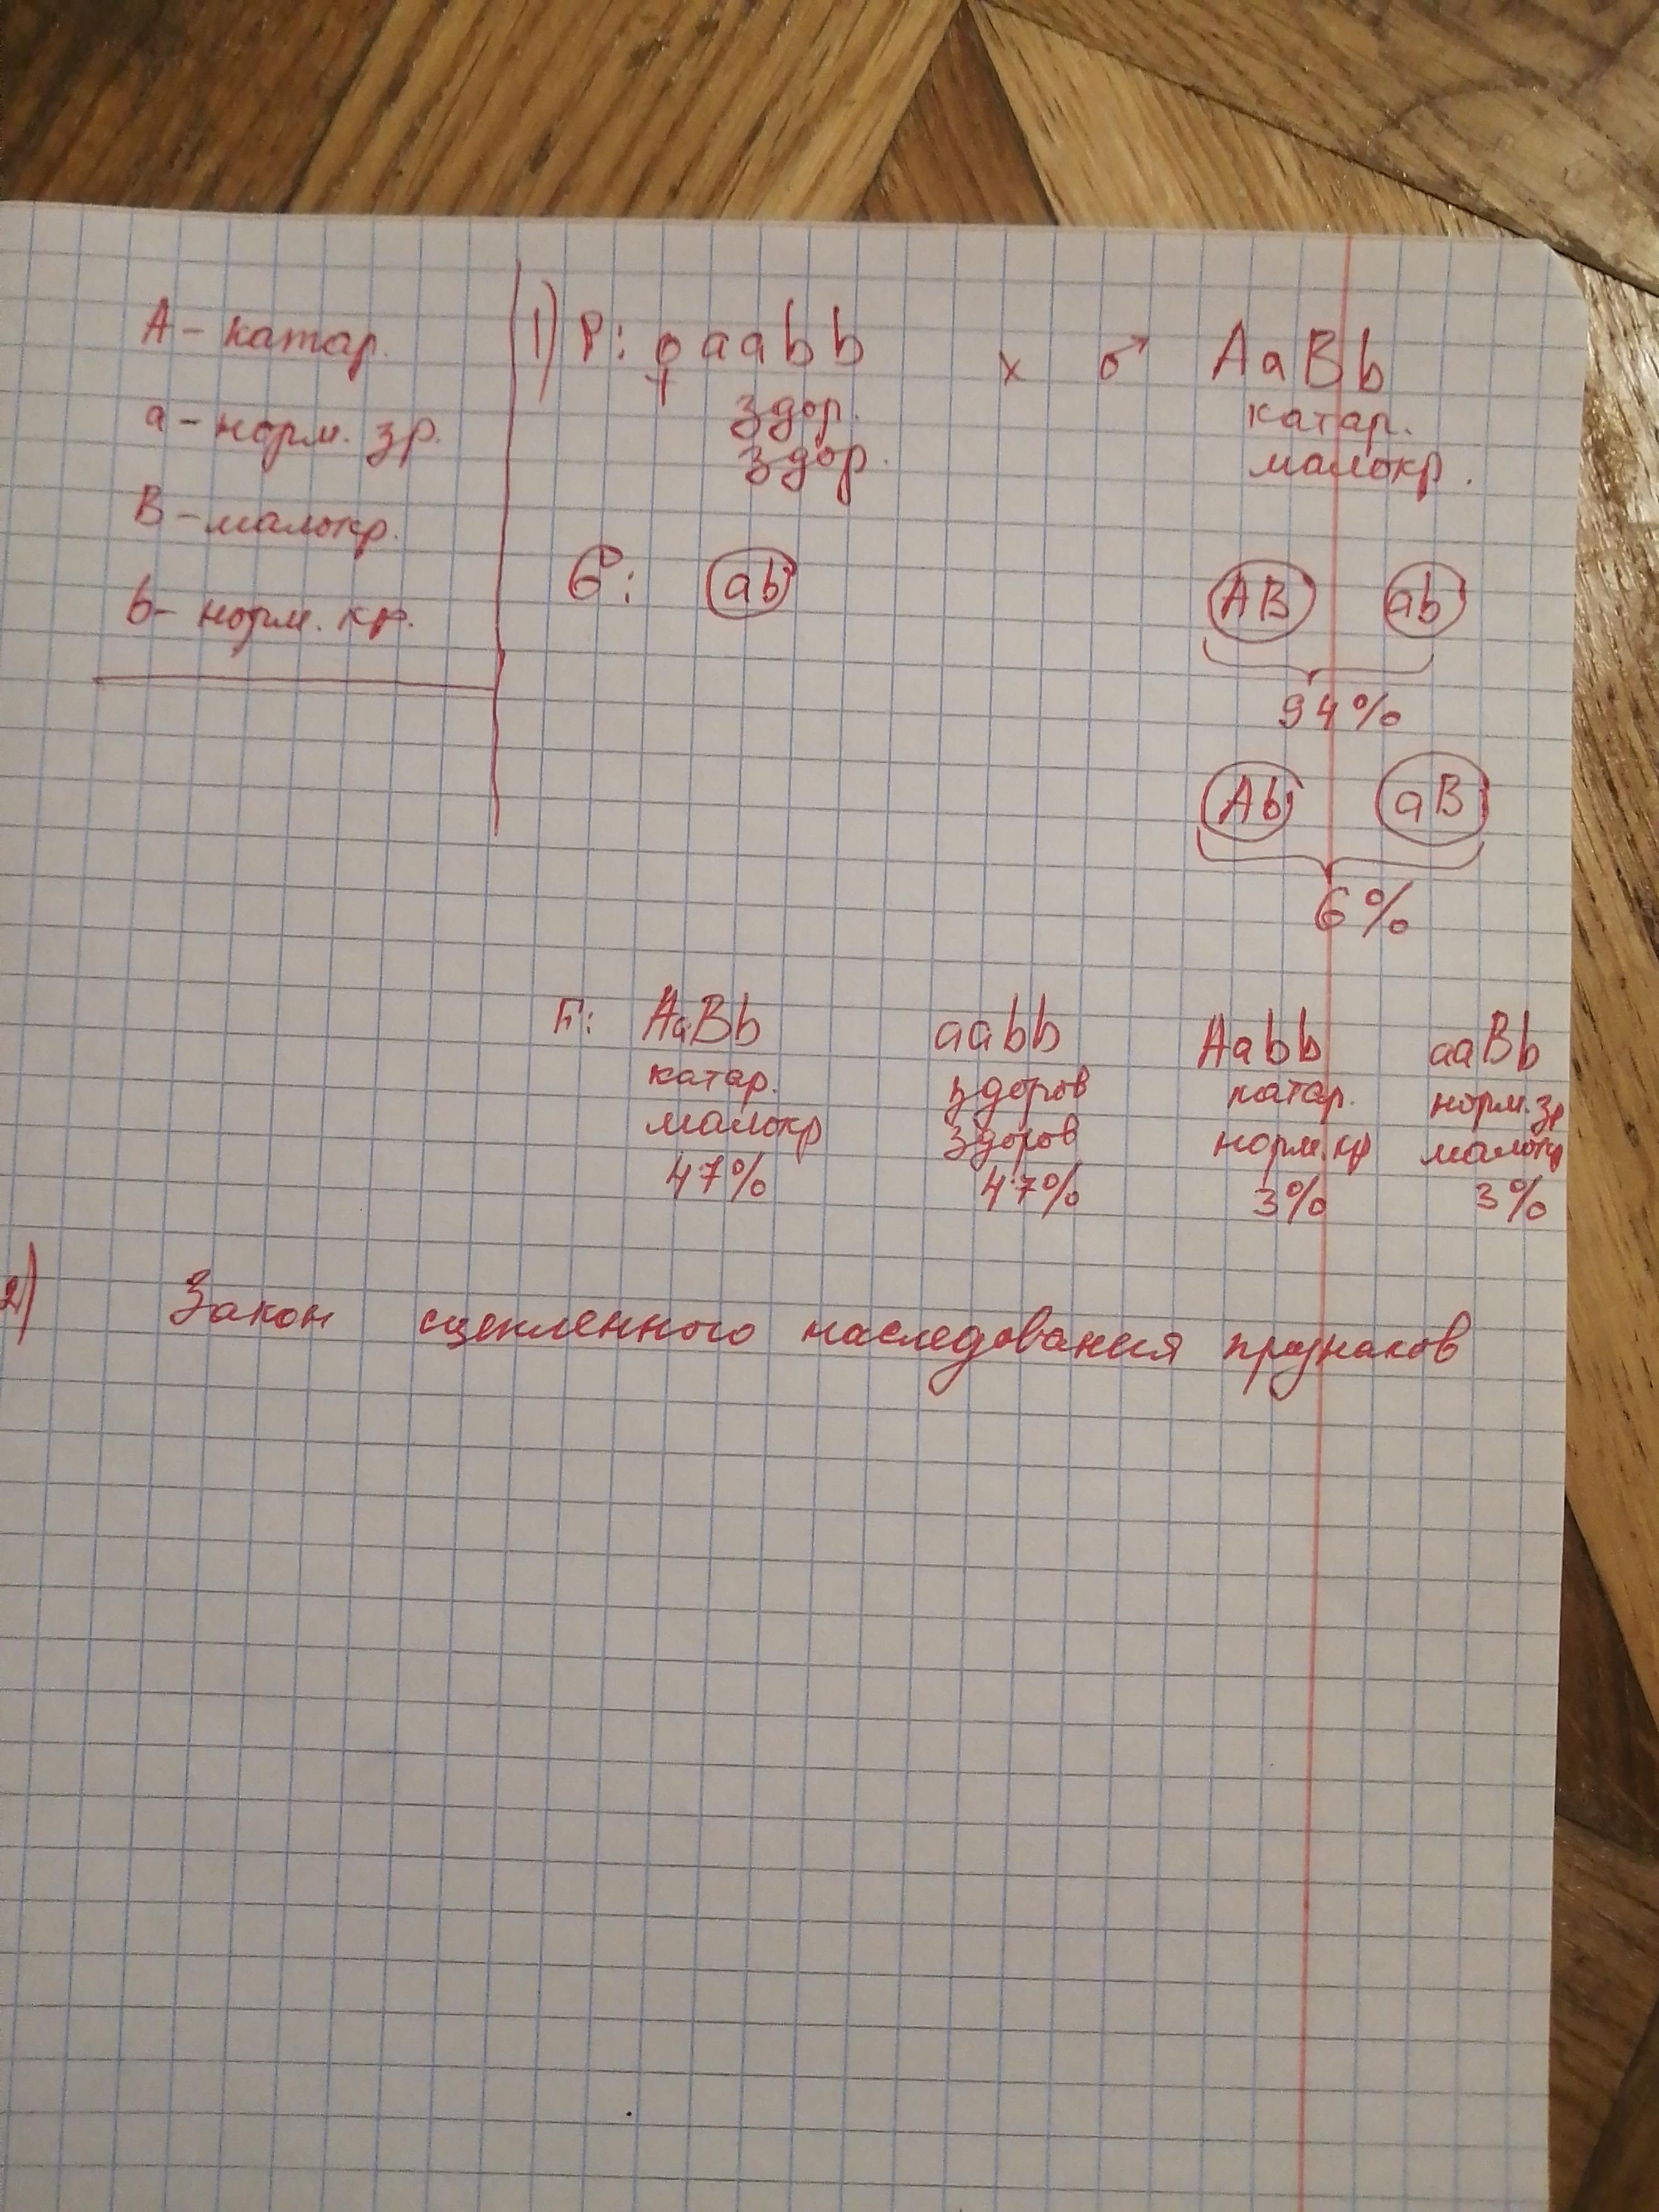 А - катар.
а - норм. зр.
В - малокр.
b - норм. кр.
1) P: ♀ aabb x ♂ AaBb
здор. катар.
здор. малокр.
G: ab AB ab
94%
Ab aB
6%
F: AaBb aabb Aabb aaBb
катар. здоров катар. норм. зр
малокр здоров норм. кр малокр
47% 47% 3% 3%
2) Закон сцепленного наследования признаков